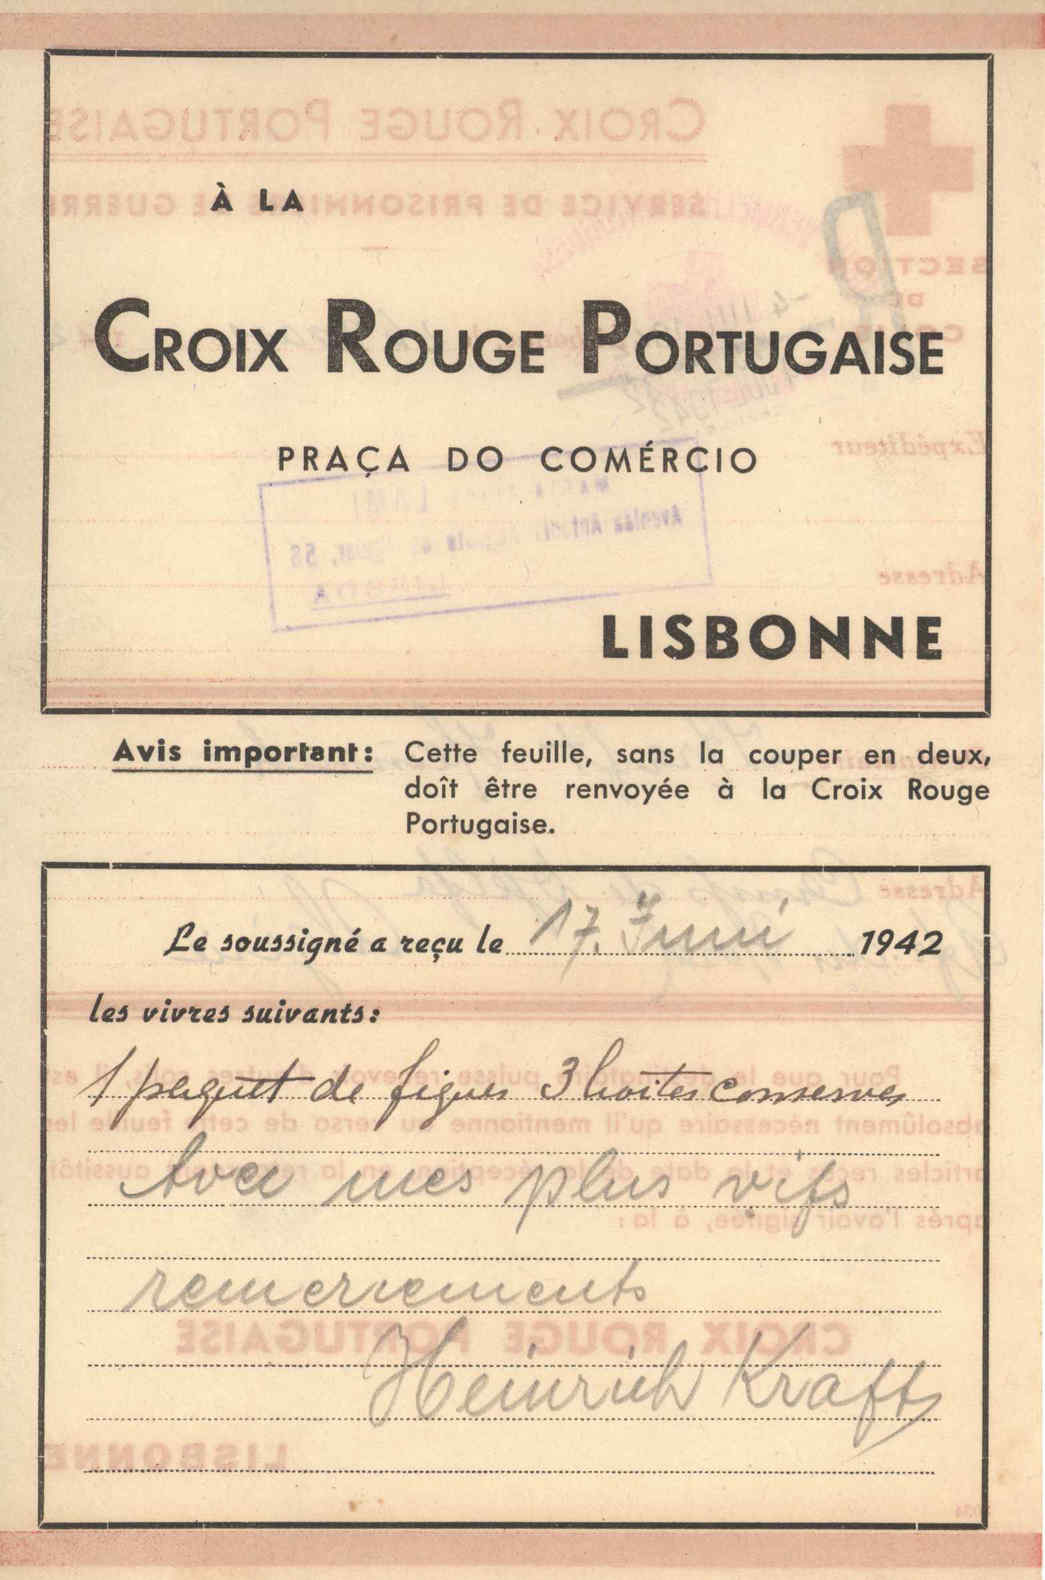 À LA
CROIX ROUGE PORTUGAISE
PRAÇA DO COMÉRCIO
LISBONNE
Avis important: Cette feuille, sans la couper en deux,
doît être renvoyée à la Croix Rouge
Portugaise.
Le soussigné a reçu le 17. Juni 1942
les vivres suivants:
1 paquet de figues 3 boites conserves
Avec mes plus vifs
remerciements
Heinrich Kraft